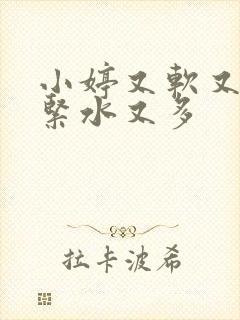 小婷又軟又
緊水又多
拉卡波希